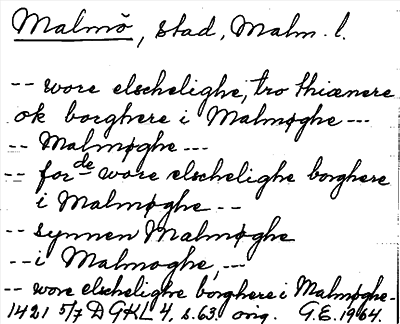 Malmö, stad, Malm. l.
-- wore elschelighe, tro thiænere
ok borghere i Malmøghe ---
-- Malmøghe ---
-- for de wore elschelighe borghere
i Malmøghe --
-- synnen Malmøghe
-- i Malmoghe, ---
-- wore elschelighe borghere i Malmøghe-
1421 5/7 DGKL 4, s.63, orig. G.E. 1964.